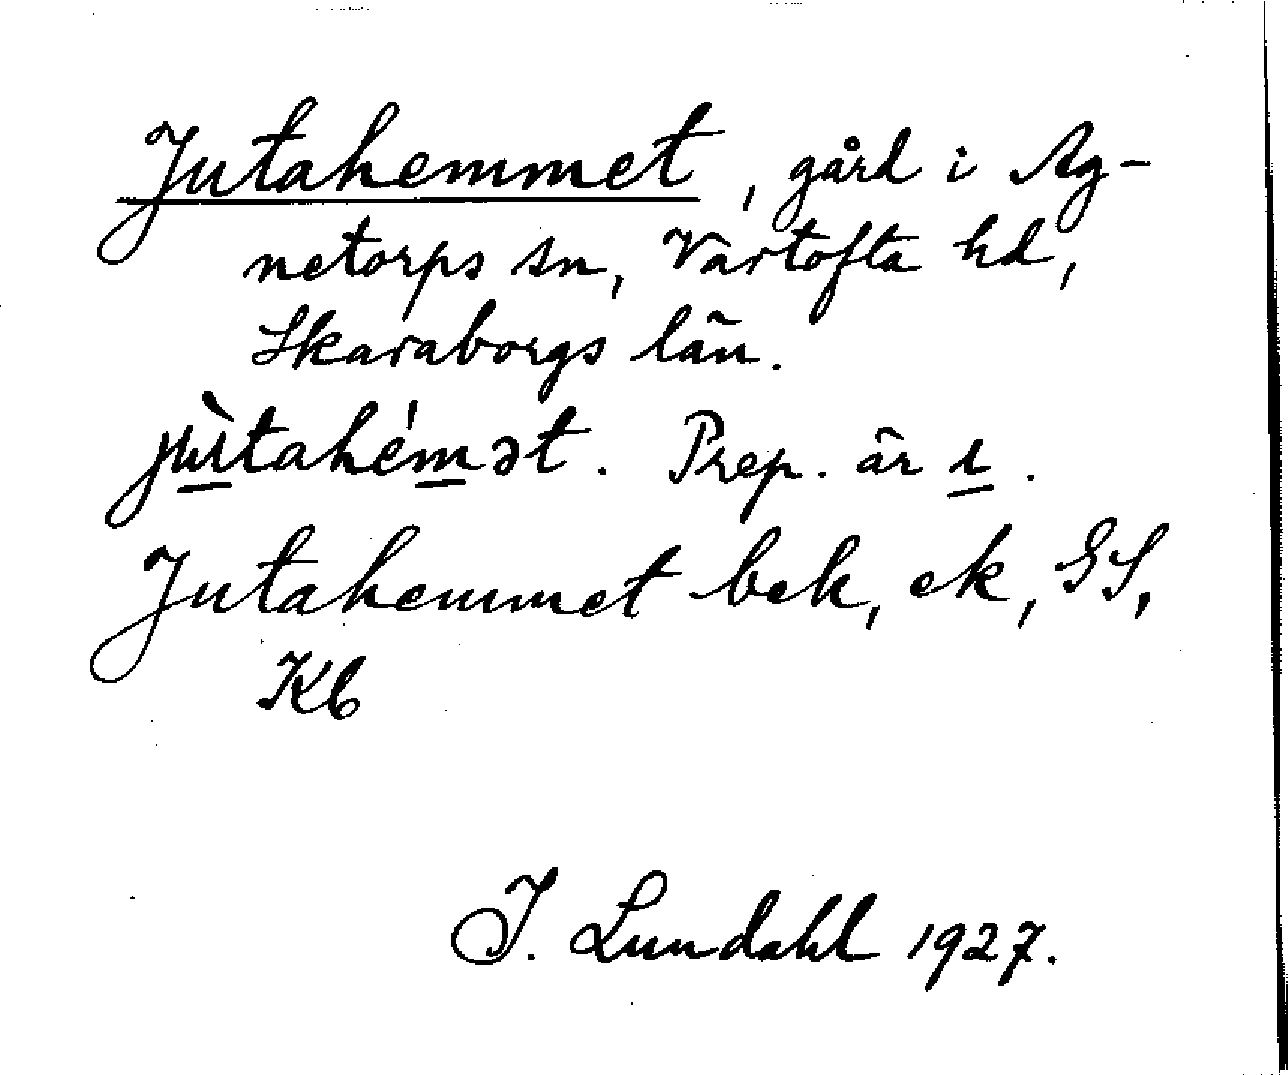 Jutahemmet, gård i Ag-
netorps sn, Vartofta hd,
Skaraborgs län.
jùtahémət. Prep. är ɩ.
Jutahemmet bek, ek, GS,
Kb
I. Lundahl 1927.